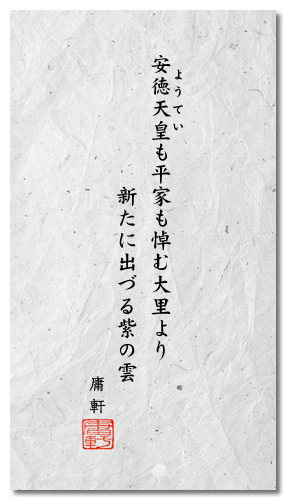 安徳天皇も平家も悼む大里より
ようてい
新たに出づる紫の雲
庸軒
庸軒